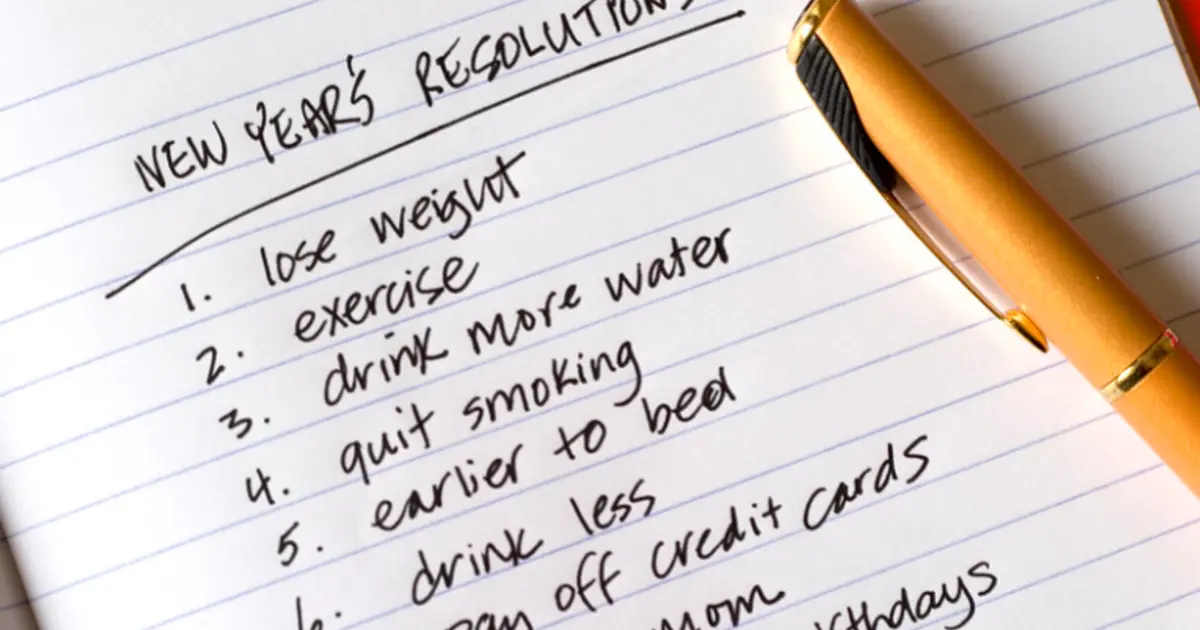 NEW YEAR'S RESOLUTIONS
1. lose weight
2. exercise
3. drink more water
4. quit smoking
5. earlier to bed
6. drink less
pay off credit cards
mom
birthdays